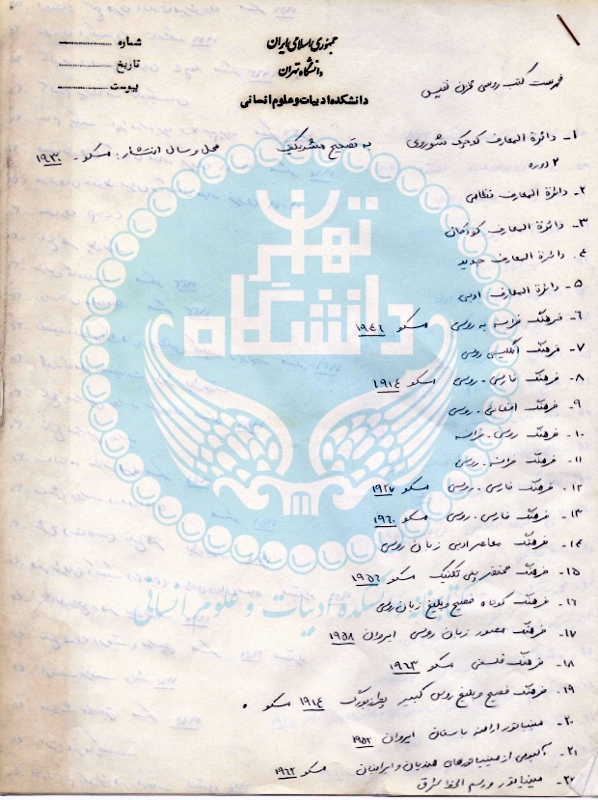 جمهوری اسلامی ایران
دانشگاه تهران
دانشکده ادبیات و علوم انسانی
شماره ....................
تاریخ ....................
پیوست ....................
فهرست کتب روسی
۱- دائرة المعارف کوچک شوروی به تصحیح محل و سال انتشار: مسکو - ۱۹۳۰
۲ دوره
۲- دائرة المعارف نظامی
۳- دائرة المعارف کودکان
۴- دائرة المعارف جدید
۵- دائرة المعارف ادبی
۶- فرهنگ فرانسه به روسی مسکو ۱۹۴۶
۷- فرهنگ انگلیسی روسی
۸- فرهنگ فارسی - روسی مسکو ۱۹۱۴
۹- فرهنگ افغانی - روسی
۱۰- فرهنگ روسی - فرانسه
۱۱- فرهنگ فرانسه - روسی
۱۲- فرهنگ فارسی - روسی مسکو ۱۹۲۷
۱۳- فرهنگ فارسی - روسی مسکو ۱۹۶۰
۱۴- فرهنگ معاصر ادبی زبان روسی
۱۵- فرهنگ مختصر پلی تکنیک مسکو ۱۹۵۶
۱۶- فرهنگ کوتاه فصیح و بلیغ زبان روسی
۱۷- فرهنگ مصور زبان روسی ایروان ۱۹۵۸
۱۸- فرهنگ فلسفی مسکو ۱۹۶۳
۱۹- فرهنگ فصیح و بلیغ روسی کبیر پطرزبورگ ۱۹۱۴ مسکو
۲۰- مینیاتور ارامنه باستان ایروان ۱۹۵۲
۲۱- آلبومی از مینیاتورهای هندیان و ایرانیان مسکو ۱۹۶۲
۲۲- مینیاتور و رسم الخط شرق
دانشگاه تهران
کتابخانه دانشکده ادبیات و علوم انسانی